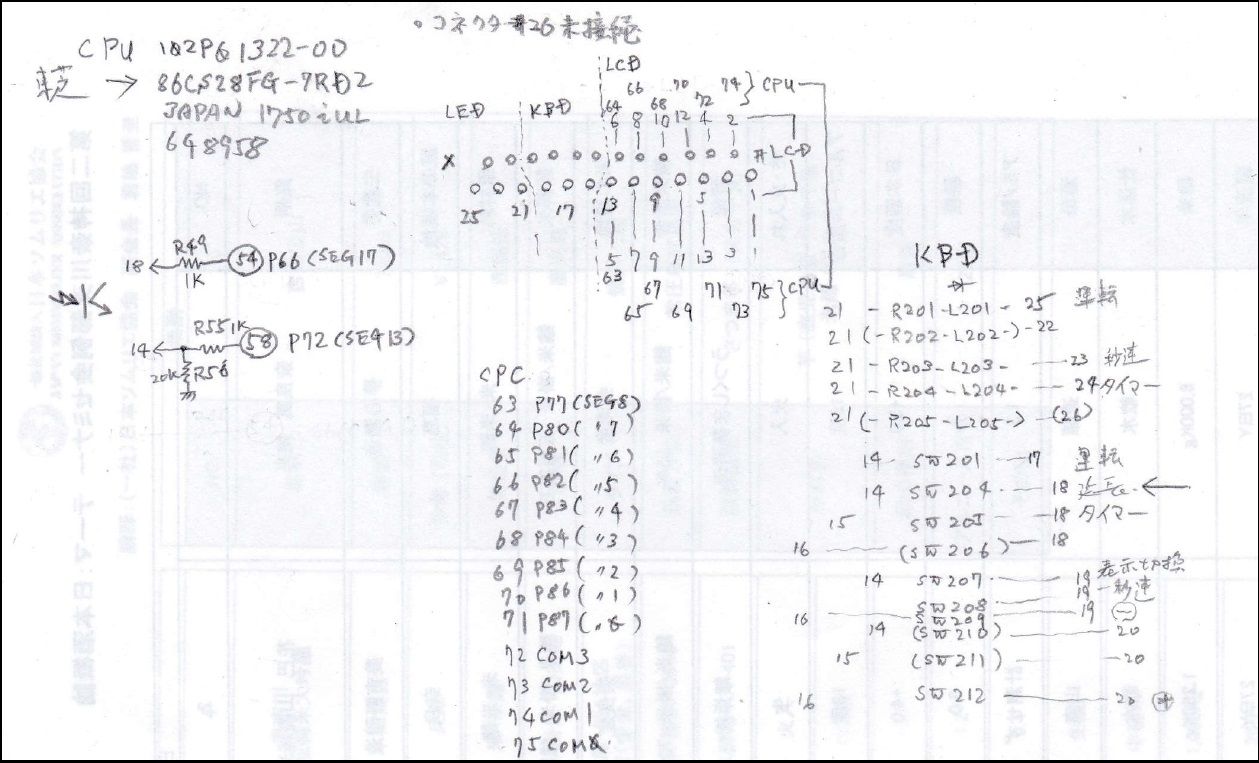 ・コネクタ#26未接続
CPU 102P61322-00
東芝 → 86CS28FG-7RD2
JAPAN 1750iUL
648958
LCD
66 70 74 } CPU
LED KBD 64 68 72
6 8 10 12 4 2
X #LCD
25 21 17 13 9 5 1
5 7 9 11 13 3 1
63 67 71 75 } CPU
65 69 73
R49
18 ← (54) P66 (SEG17)
1K
R55 1K
14 ← (58) P72 (SEG13)
20K R56
CPC
63 P77 (SEG8)
64 P80 ( 〃7 )
65 P81 ( 〃6 )
66 P82 ( 〃5 )
67 P83 ( 〃4 )
68 P84 ( 〃3 )
69 P85 ( 〃2 )
70 P86 ( 〃1 )
71 P87 ( 〃0 )
72 COM3
73 COM2
74 COM1
75 COM0
KBD
21 - R201-L201- 25 運転
21 (-R202-L202-) -22
21 - R203-L203- 23 秒速
21 - R204-L204- 24 タイマー
21 (-R205-L205-) -(26)
14 - SW201 - 17 運転
14 SW204 - 18 ←
15 SW205 - 18 タイマー
16 (SW206) - 18
14 SW207 - 19 表示切換
SW208 - 19 秒速
16 SW209 - 19 (-)
14 (SW210) - 20
15 (SW211) - 20
16 SW212 - 20 (+)